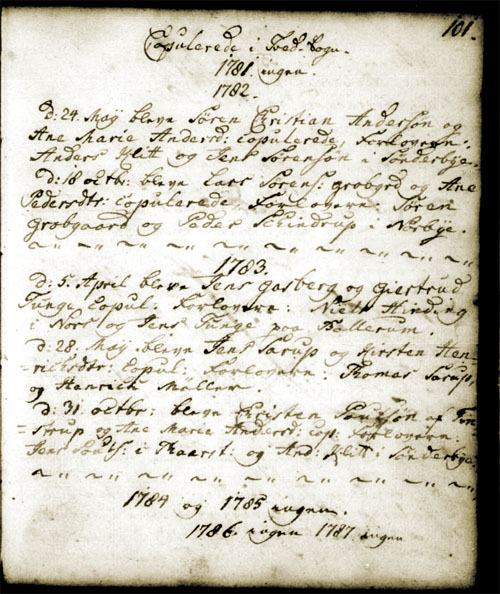 101.
Copulerede i Tved-Sogn.
1781 ingen.
1782.
d: 24. Maÿ blev Søren Christian Andersøn og
Ane Marie Andersd: copulerede, Forlovern:
Anders Klitt og Jens Sørensøn i Sønderbye.
d: 18 octbr: blev Lars Sørens: grobgrd og Ane
Pedersdtr: copulerede, Forlovere: Søren
Grobgaard og Peder Schindrup i Nørbye.
1783.
d: 5. April blev Jens Gasberg og Giertrud
Tunge Copul: Forlovere: Niels Hinding
i Nors og Jens Tunge paa Ballerum.
d: 28. Maÿ blev Jens Sarup og Kirsten Hen-
-richsdtr: Copul: Forlovere: Thomas Sarup,
og Henrich Møller.
d: 31. octbr: blev Christen Poulsøn af
=strup og Ane Marie Andersd: cop: Forlovern:
Jens i og And: Klitt i Sønderbye
1784 og 1785 ingen.
1786. ingen 1787. ingen